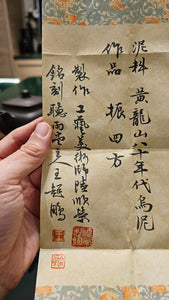 泥料 黄龍山八十年代烏泥
作品 振四方
製作 工藝美術師陸順榮
銘刻 聽雨雲亭王超鵬